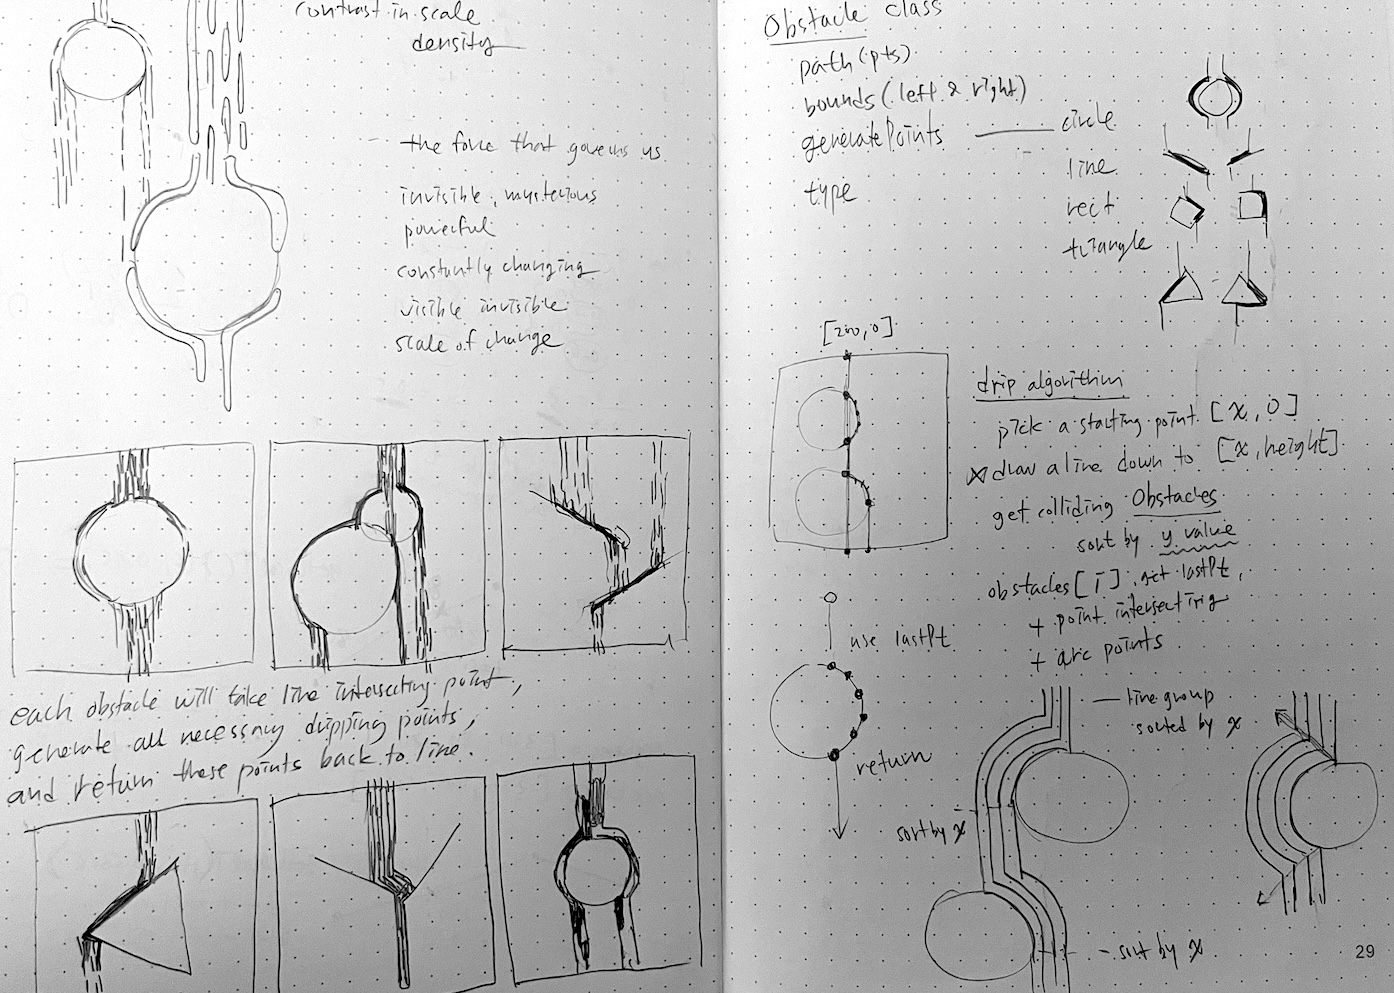 contrast in scale
density
the force that governs us
invisible, mysterious
powerful
constantly changing
visible invisible
scale of change
each obstacle will take line intersecting point,
generate all necessary dripping points,
and return these points back to line.
Obstacle class
path (pts)
bounds (left & right)
generatePoints
type
circle
line
rect
triangle
[200, 0]
drip algorithm
pick a starting point [x, 0]
draw a line down to [x, height]
get colliding Obstacles
sort by y value
obstacles[i].get lastPt,
+ point intersecting
+ arc points
use lastPt
return
line group
sorted by x
sort by x
- sort by x
29